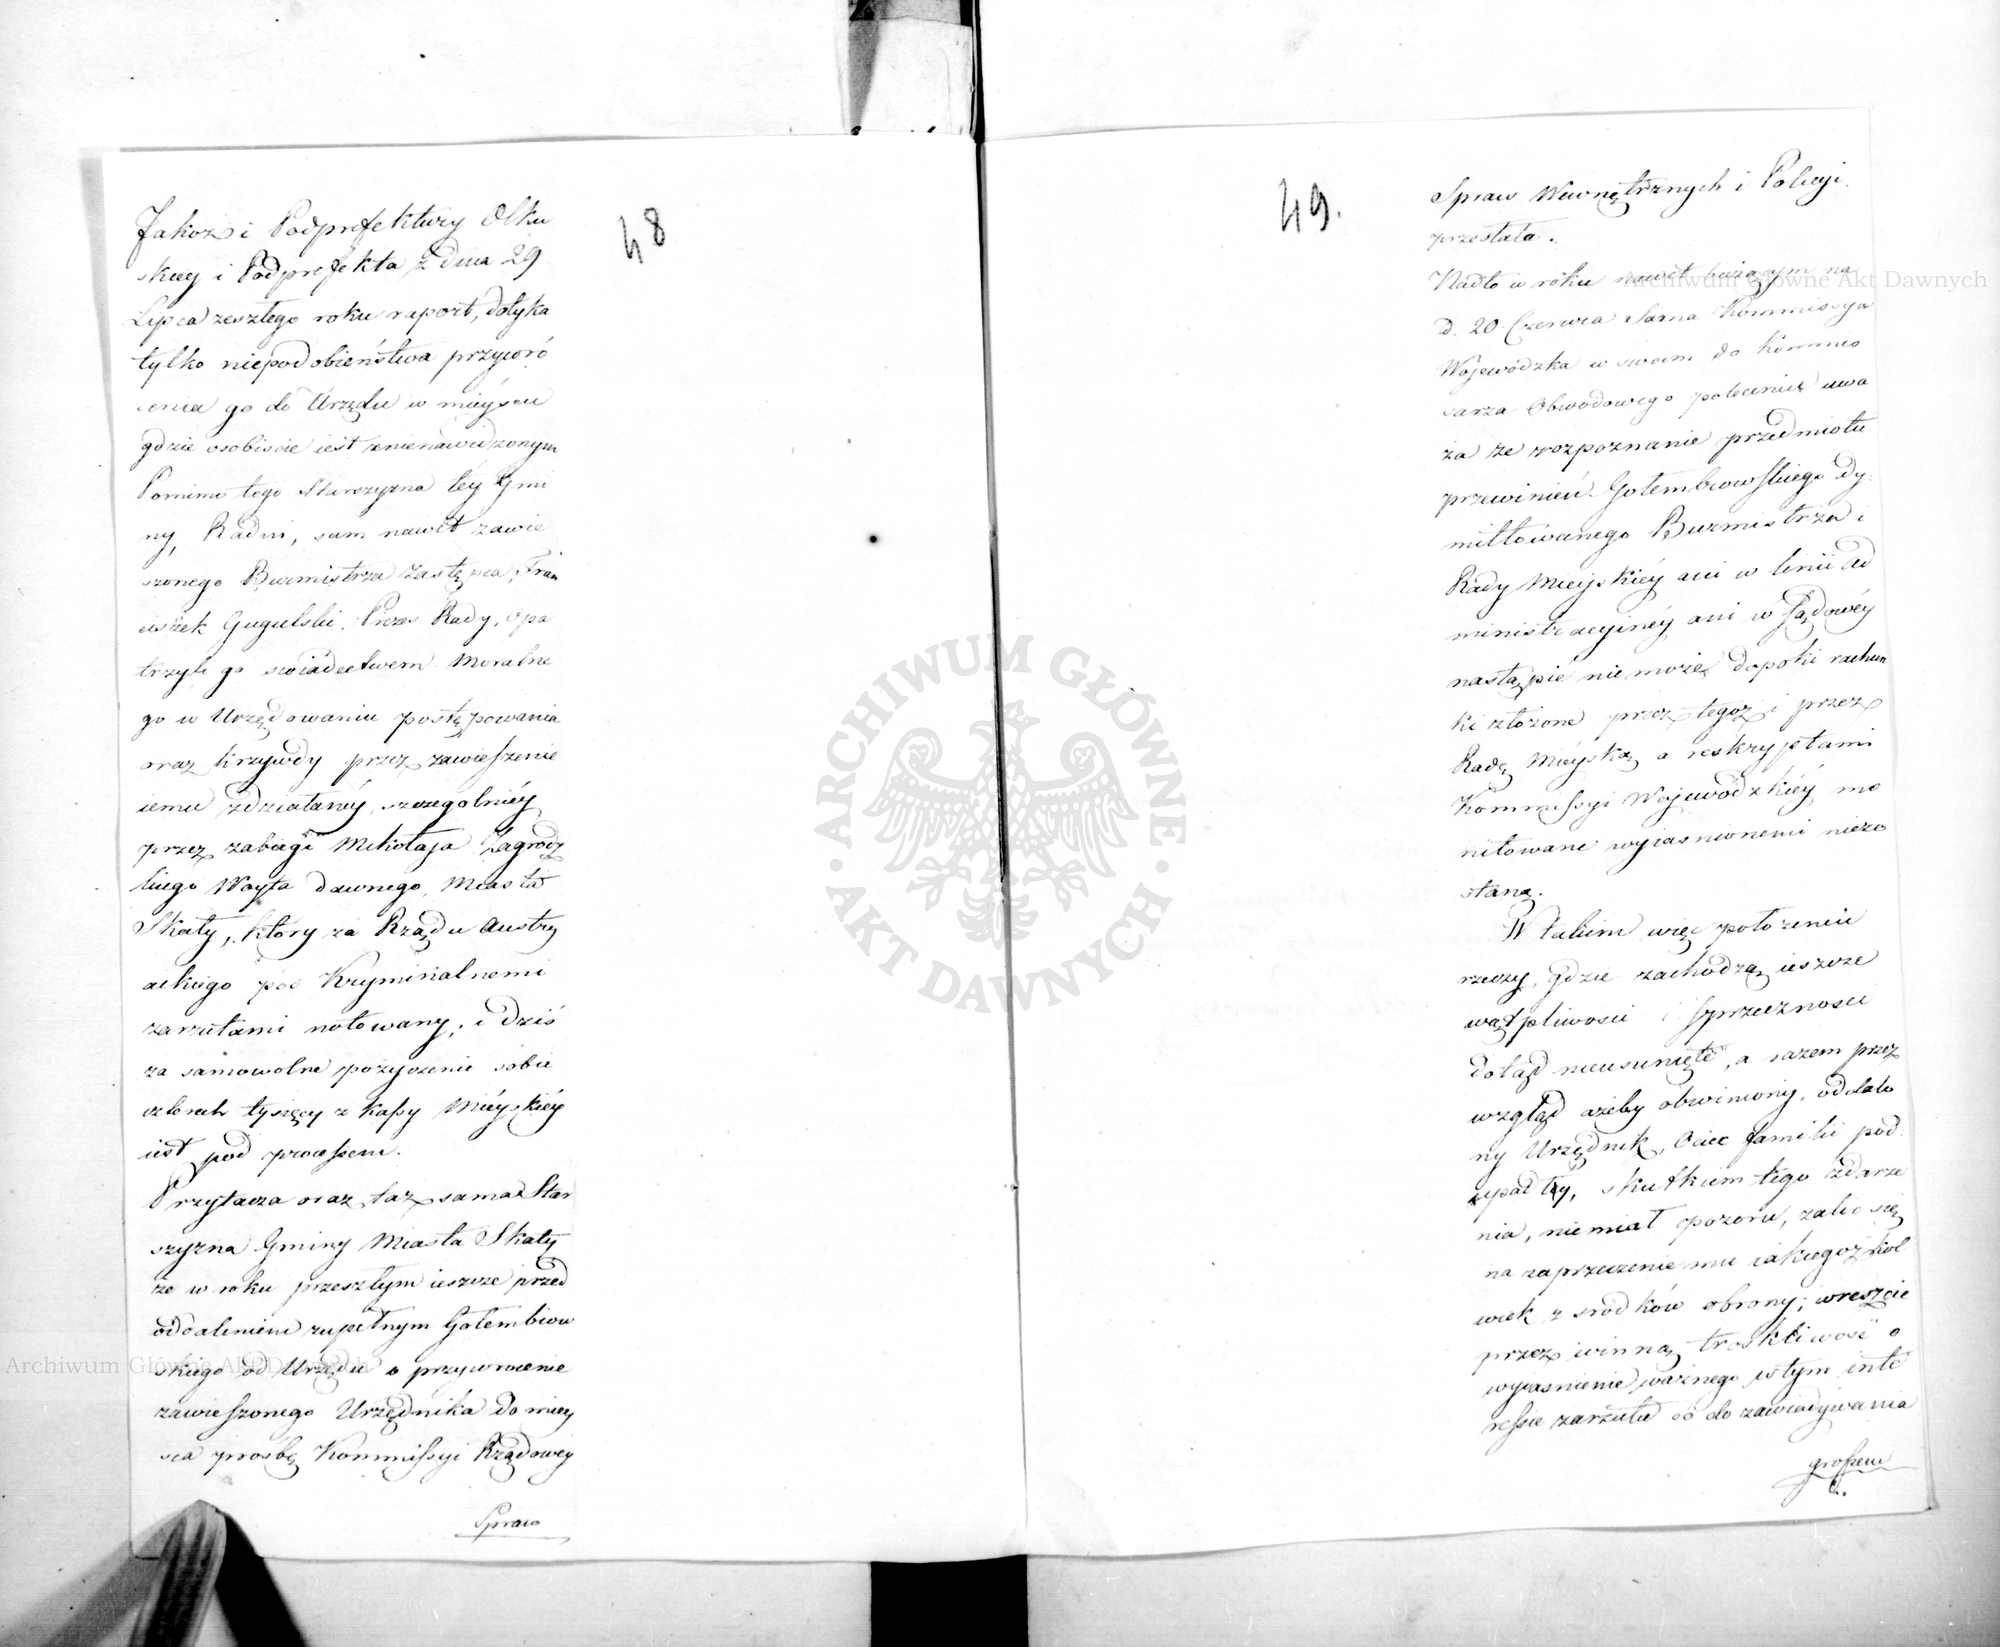 48
Jakoż i Podprefektury Olku
skiey i Podprefekta z dnia 29
Lipca zeszłego roku raport, dotyka
tylko niepodobieństwa przywró
cenia go do Urzędu w mieyscu
gdzie osobiscie iest znienawidzonym
Pomimo tego Starszyzna téy Gmi
ny, Radni, sam nawet zawie
szonego Burmistrza Zastępca, Fran
ciszek Gugulski Prezes Rady, opa
trzyli go swiadectwem Moralne
go w Urzędowaniu postępowania
oraz krzywdy przez zawieszenie
iemu zdziałanéy, szczegolniéy
przez zabiegi Mikołaja Zagrodz
kiego Woyta dawnego Miasta
Skały, który za Rządu Austry
ackiego pod Kryminalnemi
zarzutami notowany, i dziś
za samowolne pożyczenie sobie
czterech tysięcy z kassy Miéyskiéy
iest pod processem.
Przytacza oraz taż sama Star
szyzna Gminy Miasta Skały
że w roku przeszłym ieszcze przed
oddaleniem zupełnym Gołembiow
skiego od Urzędu o przywrócenie
zawieszonego Urzędnika do miey
sca prosbę Kommissyi Rządowey
Spraw
49.
Spraw Wewnętrznych i Policyi
przesłała.
Nadto w roku nawet bieżącym na
d. 20 Czerwca sama Kommissya
Wojewódzka w swoim do Kommis
sarza Obwodowego poleceniu uwa
ża że rozpoznanie przedmiotu
przewinień Gołembiowskiego dy
missiowanego Burmistrza i
Rady Mieyskiéy ani w linii ad
ministracyinéy ani w sądowéy
nastąpić nie może dopóki rachun
ki złożone przez tegoż i przez
Radę Miéyską a reskryptami
Kommissyi Wojewódzkiéy mo
nitowane wyiasnionemi niezo
staną.
W takim więc położeniu
rzeczy, gdzie zachodzą ieszcze
wątpliwosci i sprzecznosci
dotąd nieusunięte, a razem przez
wzgląd ażeby obwiniony, oddalo
ny Urzędnik, Ociec familii pod
upadły, skutkiem tego zdarze
nia, niemiał pozoru, żalić się
na zaprzeczenie mu iakiegoż kol
wiek z srodków obrony; wreszcie
przez winną troskliwość o
wyiasnienie ważnego w tym inte
ressie zarzutu co do zawiadywania
groszem
Archiwum Główne Akt Dawnych
Archiwum Główne Akt Dawnych
ARCHIWUM GŁÓWNE · AKT DAWNYCH ·